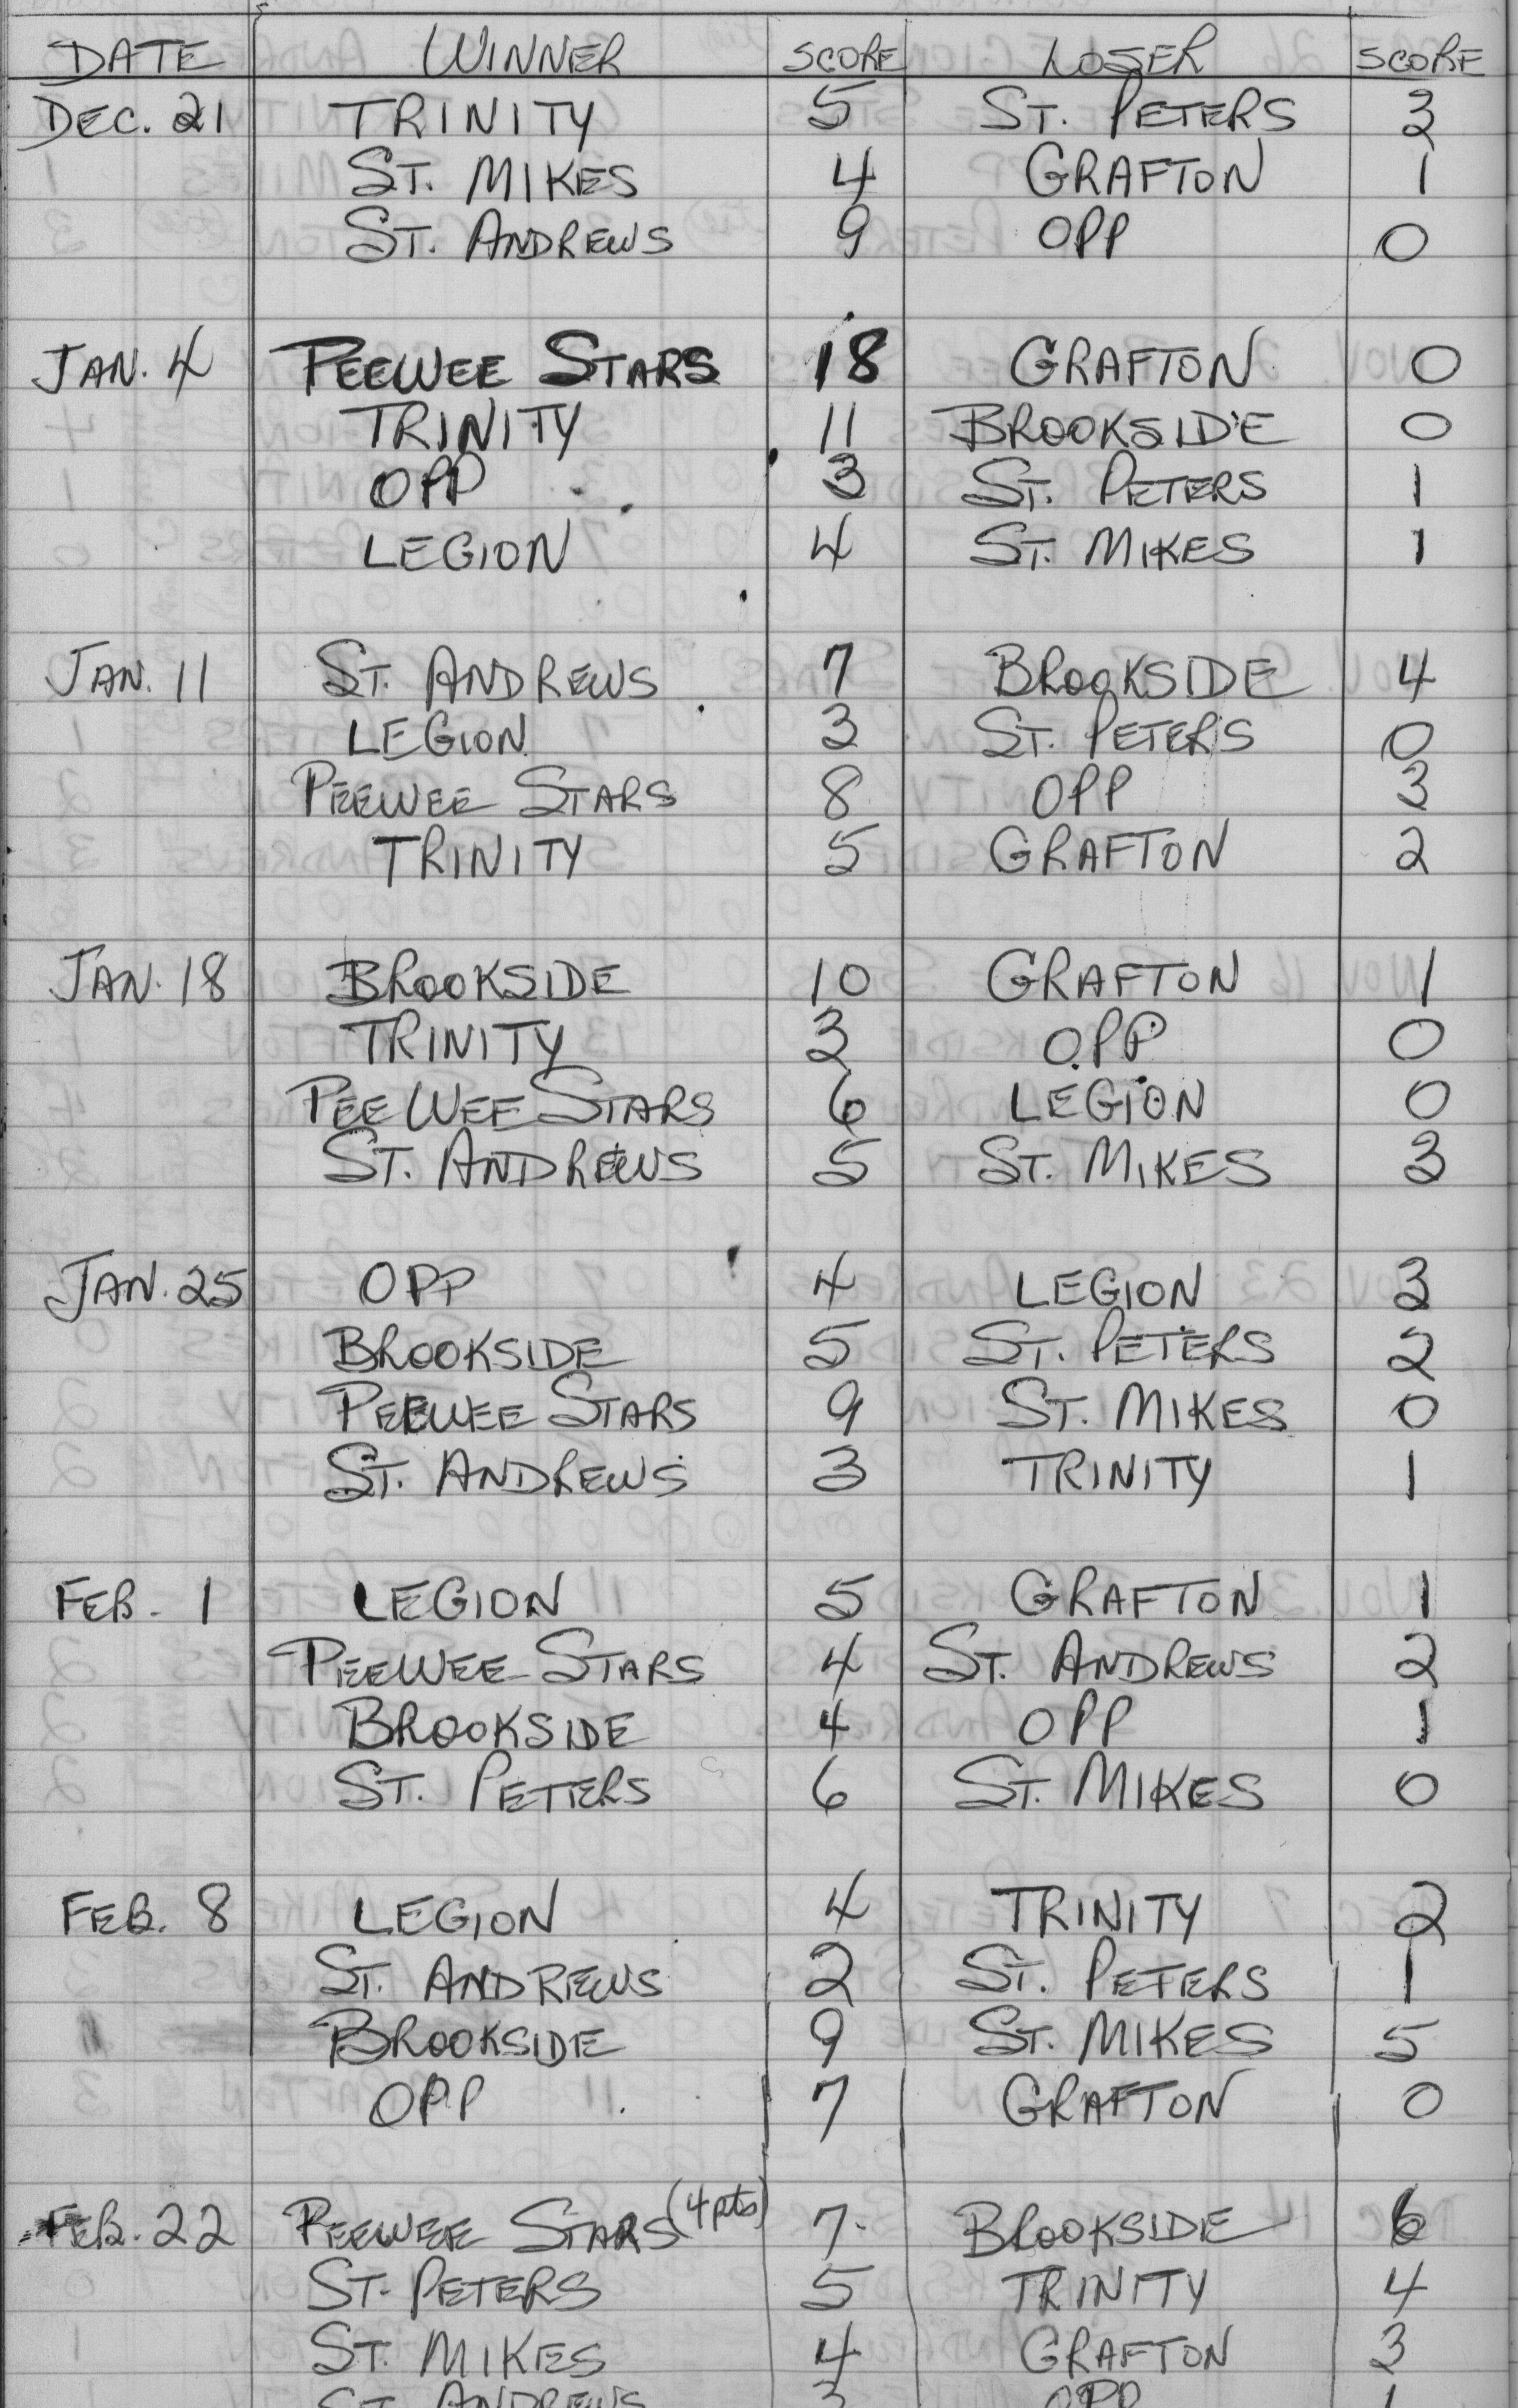 DATE WINNER SCORE LOSER SCORE
DEC. 21 TRINITY 5 ST. PETERS 3
ST. MIKES 4 GRAFTON 1
ST. ANDREWS 9 OPP 0
JAN. 4 PEEWEE STARS 18 GRAFTON 0
TRINITY 11 BROOKSIDE 0
OPP 3 ST. PETERS 1
LEGION 4 ST. MIKES 1
JAN. 11 ST. ANDREWS 7 BROOKSIDE 4
LEGION 3 ST. PETERS 0
PEEWEE STARS 8 OPP 3
TRINITY 5 GRAFTON 2
JAN. 18 BROOKSIDE 10 GRAFTON 1
TRINITY 3 OPP 0
PEE WEE STARS 6 LEGION 0
ST. ANDREWS 5 ST. MIKES 3
JAN. 25 OPP 4 LEGION 3
BROOKSIDE 5 ST. PETERS 2
PEEWEE STARS 9 ST. MIKES 0
ST. ANDREWS 3 TRINITY 1
FEB. 1 LEGION 5 GRAFTON 1
PEEWEE STARS 4 ST. ANDREWS 2
BROOKSIDE 4 OPP 1
ST. PETERS 6 ST. MIKES 0
FEB. 8 LEGION 4 TRINITY 2
ST. ANDREWS 2 ST. PETERS 1
BROOKSIDE 9 ST. MIKES 5
OPP 7 GRAFTON 0
FEB. 22 PEEWEE STARS (4 pts) 7 BROOKSIDE 6
ST. PETERS 5 TRINITY 4
ST. MIKES 4 GRAFTON 3
ST. ANDREWS 3 OPP 1